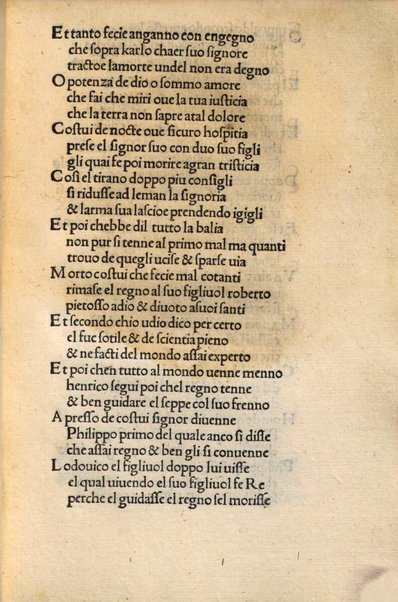 Et tanto fecie anganno con engegno
che sopra karlo chaer suo signore
tractoe lamorte undel non era degno
O potenza de dio o sommo amore
che fai che miri oue la tua iusticia
che la terra non sapre atal dolore
Costui de nocte oue sicuro hospitia
prese el signor suo con duo suo figli
gli quai fe poi morire agran tristicia
Cosi el tirano doppo piu consigli
si ridusse ad leman la signoria
& larma sua lascioe prendendo igigli
Et poi chebbe dil tutto la balia
non pur si tenne al primo mal ma quanti
trouo de quegli ucise & sparse uia
Morto costui che fecie mal cotanti
rimase el regno al suo figliuol roberto
pietosso adio & diuoto asuoi santi
Et secondo chio udio dico per certo
el fue sotile & de scientia pieno
& ne facti del mondo assai experto
Et poi chen tutto al mondo uenne menno
henrico segui poi chel regno tenne
& ben guidare el seppe col suo frenno
Apresso de costui signor diuenne
Philippo primo del quale anco si disse
che assai regno & ben gli si conuenne
Lodouico el figliuol doppo lui uisse
el qual uiuendo el suo figliuol fe Re
perche el guidasse el regno sel morisse